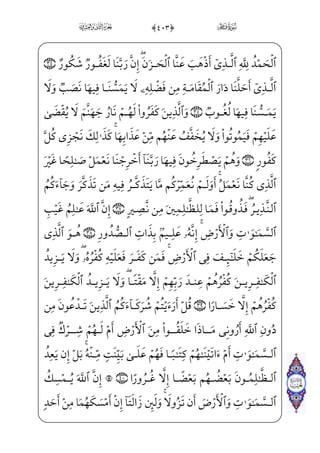 ﴿٤٠٣﴾
ٱلۡحَمۡدُ لِلَّهِ ٱلَّذِيٓ أَذۡهَبَ عَنَّا ٱلۡحَزَنَۖ إِنَّ رَبَّنَا لَغَفُورٞ شَكُورٌ
ٱلَّذِيٓ أَحَلَّنَا دَارَ ٱلۡمُقَامَةِ مِن فَضۡلِهِۦ لَا يَمَسُّنَا فِيهَا نَصَبٞ وَلَا
يَمَسُّنَا فِيهَا لُغُوبٞ وَٱلَّذِينَ كَفَرُواْ لَهُمۡ نَارُ جَهَنَّمَ لَا يُقۡضَىٰ
عَلَيۡهِمۡ فَيَمُوتُواْ وَلَا يُخَفَّفُ عَنۡهُم مِّنۡ عَذَابِهَاۚ كَذَٰلِكَ نَجۡزِي كُلَّ
كَفُورٖ وَهُمۡ يَصۡطَرِخُونَ فِيهَا رَبَّنَآ أَخۡرِجۡنَا نَعۡمَلۡ صَٰلِحًا غَيۡرَ
ٱلَّذِي كُنَّا نَعۡمَلُۚ أَوَلَمۡ نُعَمِّرۡكُم مَّا يَتَذَكَّرُ فِيهِ مَن تَذَكَّرَ وَجَآءَكُمُ
ٱلنَّذِيرُۖ فَذُوقُواْ فَمَا لِلظَّٰلِمِينَ مِن نَّصِيرٍ إِنَّ ٱللَّهَ عَٰلِمُ غَيۡبِ
ٱلسَّمَٰوَٰتِ وَٱلۡأَرۡضِۚ إِنَّهُۥ عَلِيمُۢ بِذَاتِ ٱلصُّدُورِ هُوَ ٱلَّذِي
جَعَلَكُمۡ خَلَٰٓئِفَ فِي ٱلۡأَرۡضِۚ فَمَن كَفَرَ فَعَلَيۡهِ كُفۡرُهُۥۖ وَلَا يَزِيدُ
ٱلۡكَٰفِرِينَ كُفۡرُهُمۡ عِندَ رَبِّهِمۡ إِلَّا مَقۡتٗاۖ وَلَا يَزِيدُ ٱلۡكَٰفِرِينَ
كُفۡرُهُمۡ إِلَّا خَسَارٗا قُلۡ أَرَءَيۡتُمۡ شُرَكَآءَكُمُ ٱلَّذِينَ تَدۡعُونَ مِن
دُونِ ٱللَّهِ أَرُونِي مَاذَا خَلَقُواْ مِنَ ٱلۡأَرۡضِ أَمۡ لَهُمۡ شِرۡكٞ فِي
ٱلسَّمَٰوَٰتِ أَمۡ ءَاتَيۡنَٰهُمۡ كِتَٰبٗا فَهُمۡ عَلَىٰ بَيِّنَتٖ مِّنۡهُۚ بَلۡ إِن يَعِدُ
ٱلظَّٰلِمُونَ بَعۡضُهُم بَعۡضًا إِلَّا غُرُورًا ۞ إِنَّ ٱللَّهَ يُمۡسِكُ
ٱلسَّمَٰوَٰتِ وَٱلۡأَرۡضَ أَن تَزُولَاۚ وَلَئِن زَالَتَآ إِنۡ أَمۡسَكَهُمَا مِنۡ أَحَدٖ